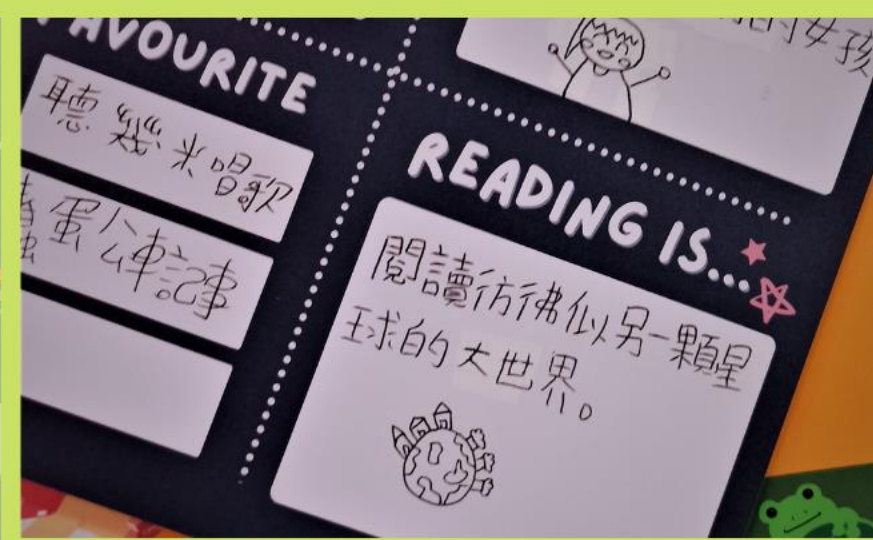 FAVOURITE
聽幾米唱歌
蛋公車記事
READING IS...
閱讀彷彿似另一顆星
球的大世界。
的女孩